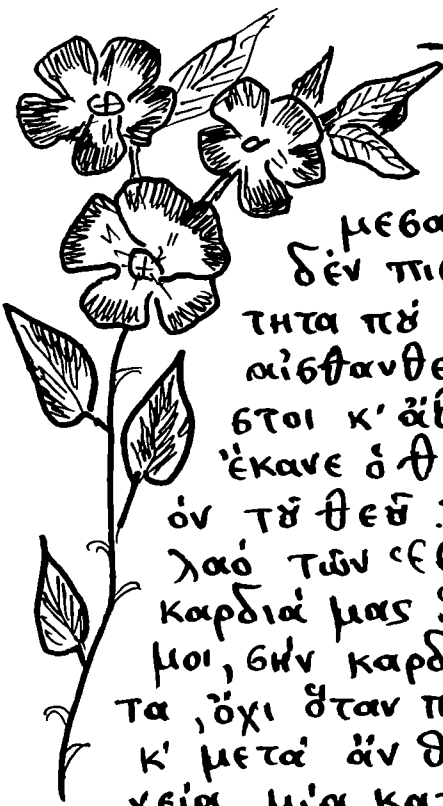 μεσα
δέν πισ
τητα πȣ
αἰσθανθε
στοι κ' ἀΐ
ἔκανε ὁ θ
όν τȣ̃ θεȣ̃
λαό τῶν ἑβ
καρδιά μας
μοι, σήν καρδ
τα, ὄχι ὅταν π
κ' μετά ἄν θ
νεία μία κατ